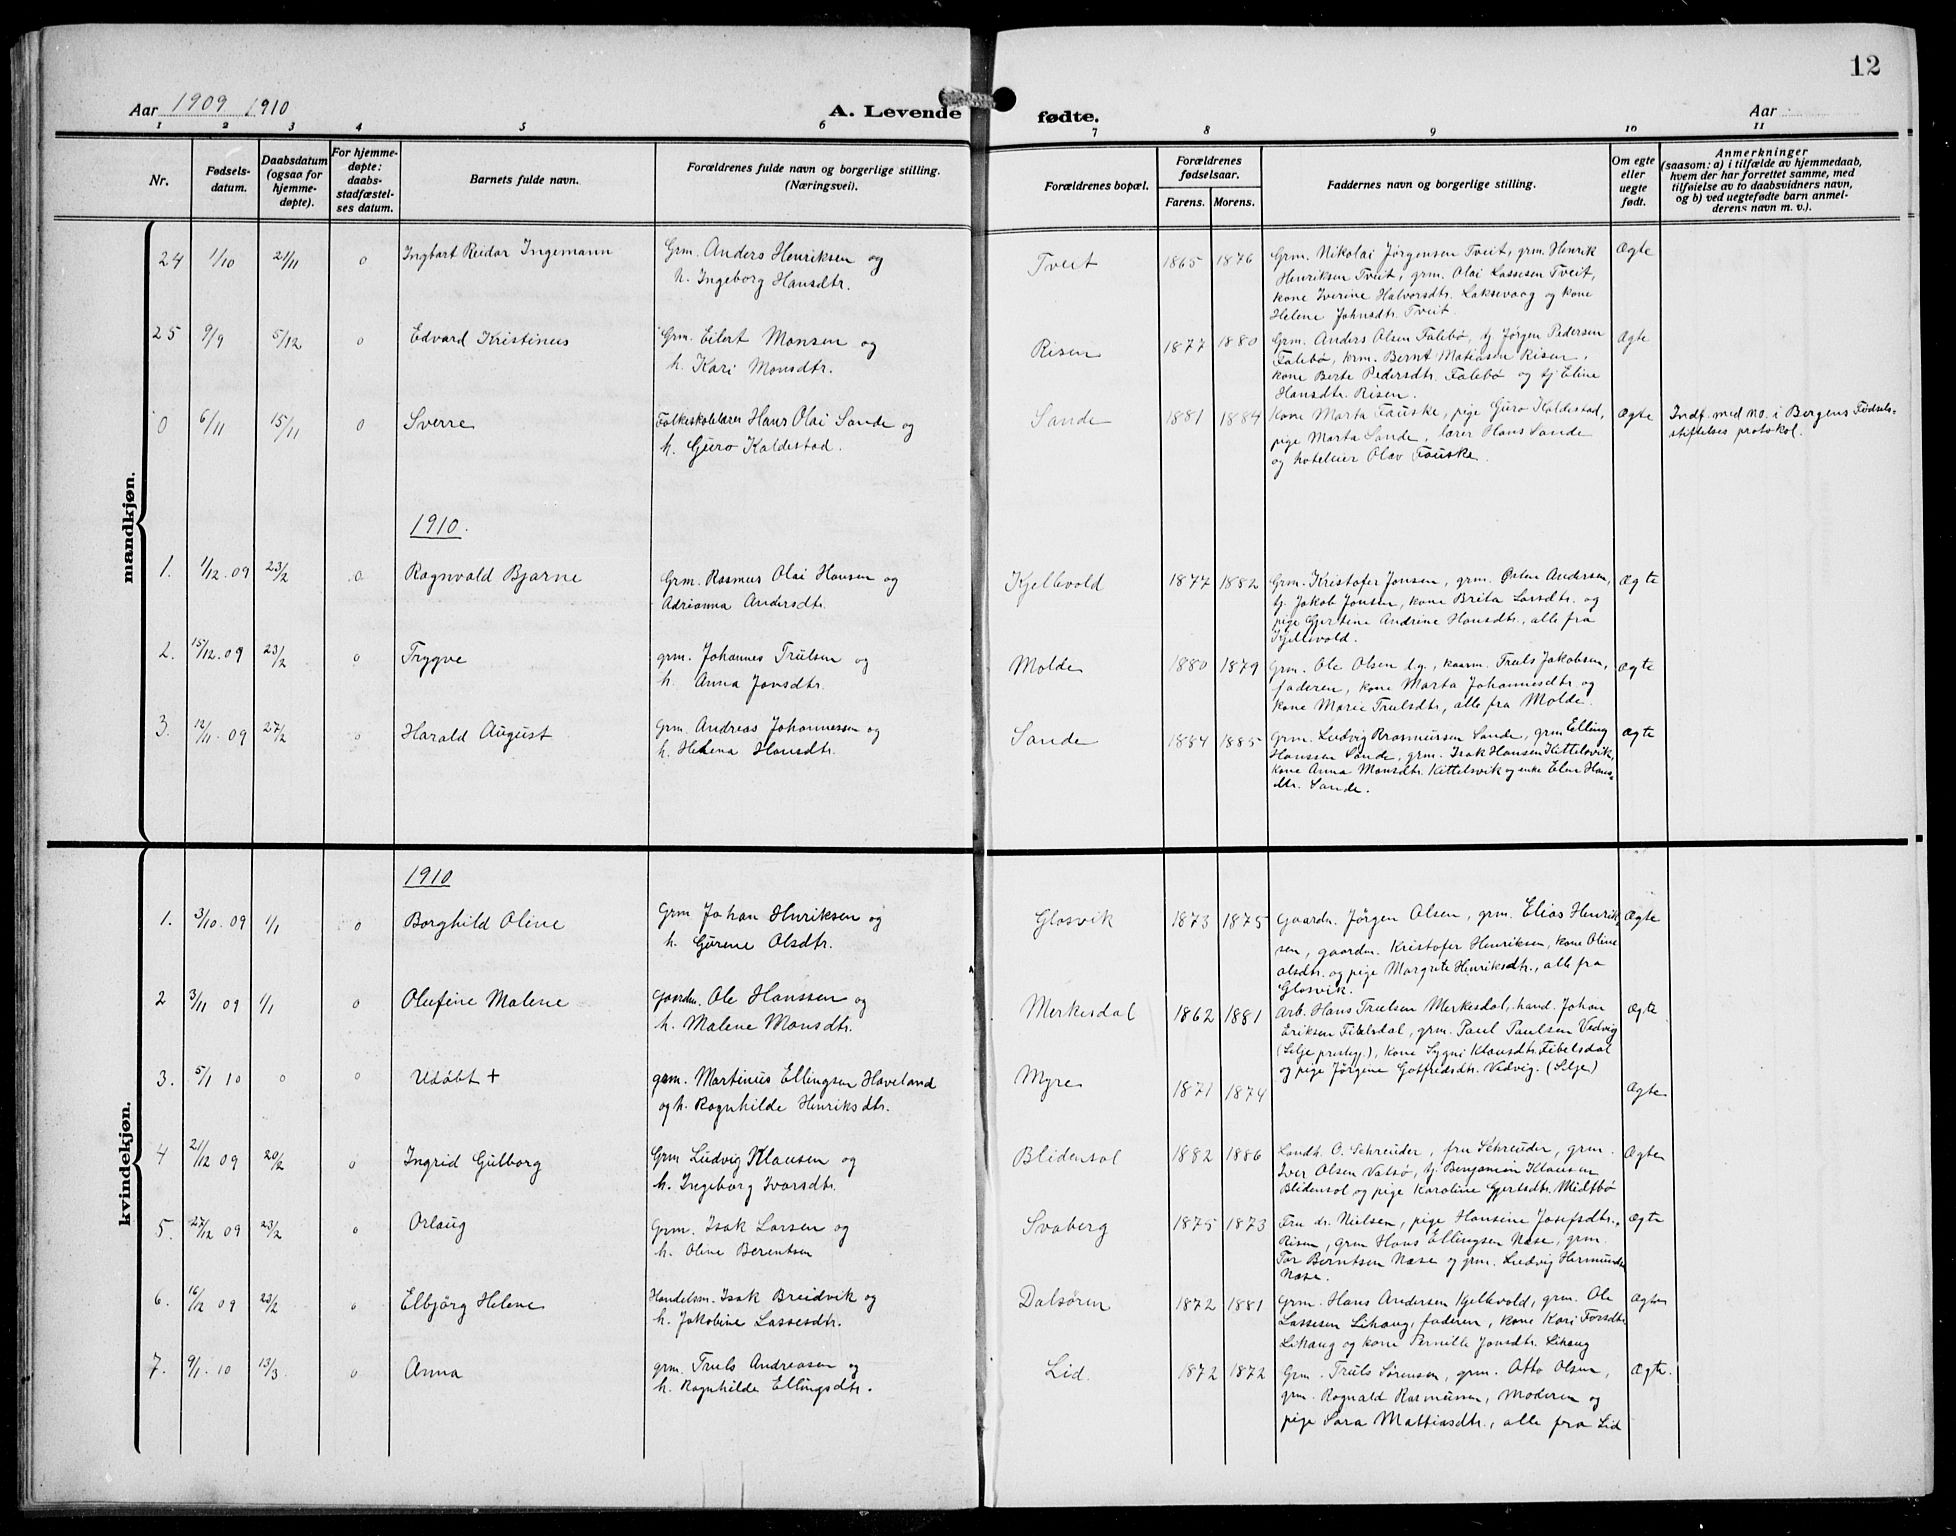 12
Aar 1909 1910
A. Levende fødte.
Aar
1 2 3 4 5 6 7 8 9 10 11
Nr.
Fødsels-
datum.
Daabsdatum
(ogsaa for
hjemme-
døpte).
For hjemme-
døpte:
daabs-
stadfæstel-
ses datum.
Barnets fulde navn.
Forældrenes fulde navn og borgerlige stilling.
(Næringsvei).
Forældrenes bopæl.
Forældrenes
fødselsaar.
Farens. Morens.
Faddernes navn og borgerlige stilling.
Om egte
eller
uegte
født.
Anmerkninger
(saasom: a) i tilfælde av hjemmedaab,
hvem der har forrettet samme, med
tilføielse av to daabsvidners navn,
og b) ved uegtefødte barn anmel-
derens navn m. v.).
mandkjøn.
24 1/10 21/11 o Ingbart Reidar Ingemann
Grm. Anders Henriksen og
h. Ingeborg Hansdtr.
Tveit 1865 1876
Grm. Nikolai Jørgensen Tveit, grm. Henrik
Henriksen Tveit, grm. Olai Lassesen Tveit,
kone Iverine Halvorsdtr. Laksevaag og kone
Helene Johnsdtr. Tveit.
Ægte
25 9/9 5/12 o Edvard Kristinus
Grm. Eilert Monsen og
h. Kari Monsdtr.
Risen 1877 1880
Grm. Anders Olsen Falebø, tj Jørgen Pedersen
Falebø, krm. Bernt Matiasen Risen,
kone Berte Pedersdtr. Falebø og tj Eline
Hansdtr. Risen.
Ægte
0 6/11 15/11 o Sverre
Folkeskolelærer Hans Olai Sande og
h. Guro Kaldestad.
Sande 1881 1884
Kone Marta Fauske, pige Guro Kaldestad,
pige Marta Sande, lærer Hans Sande
og hoteleier Olav Fauske.
Ægte
Indf. med no. i Bergens Fødsels-
stiftelses protokol.
1910.
1. 1/12. 09 23/2 o Ragnvald Bjarne
Grm. Rasmus Olai Hansen og
Adrianna Andersdtr.
Kjellevold 1877 1882
Grm. Kristofer Jonsen, grm. Østen Andersen,
tj. Jakob Jonsen, kone Brita Larsdtr. og
pige Gjertine Andrine Hansdtr., alle fra
Kjellevold.
Ægte
2. 15/12. 09 23/2 o Trygve
grm. Johannes Trulsen og
h. Anna Jonsdtr.
Molde 1880 1879
Grm. Ole Olsen d.y., kaarm. Truls Jakobsen,
faderen, kone Marta Johannesdtr og
kone Marie Trulsdtr, alle fra Molde.
Ægte
3. 12/11. 09 27/2 o Harald August
Grm. Andreas Johannessen og
h. Helena Hansdtr.
Sande 1884 1885
Grm. Ludvig Rrasmussen Sande, grm Elling
Hanssen Sande, grm. Isak Hansen Kittelsvik,
kone Anna Monsdtr. Kittelsvik og enke Elen Hans-
dtr. Sande.
Ægte
kvindekjøn.
1910
1. 3/10. 09 1/1 o Borghild Oline
Grm Johan Henriksen og
h. Gurene Olsdtr.
Glosvik 1873 1875
Gaardm. Jørgen Olsen, grm. Elias Henrik-
sen, gaardm. Kristofer Henriksen, kone Oline
Olsdtr. og pige Margrete Henriksdtr., alle fra
Glosvik.
Ægte
2 3/11 09 1/1 o Olufine Malene
Gaardm. Ole Hanssen og
h. Malene Monsdtr.
Merkesdal 1862 1881
Arb. Hans Truelsen Merkesdal, hand. Johan
Eriksen Fibelsdal, grm. Paul Paulsen Vedvig
(Selje prestegj.), kone Sygni Klausdtr. Fibelsdal
og pige Jørgine Gotfredsdtr. Vedvig. (Selje)
Ægte
3. 5/1 10 o o Udøbt +
grm. Martinus Ellingsen Haveland
og h. Ragnhilde Henriksdtr.
Myre 1871 1874
Ægte
4 21/12 09 20/2 o Ingrid Gulborg
Grm Ludvig Klausen og
h. Ingeborg Ivarsdtr.
Blidensol 1882 1886
Landh. O. Schreuder, fru Schreuder, grm.
Iver Olsen Vatsø, tj. Benjamin Klausen
Blidensol og pige Karoline Gjertsdtr. Midtbø
Ægte
5. 27/12 09 23/2 o Orlaug
Grm. Isak Larsen og
h. Oline Berentsen
Svaberg 1875 1873
Fru dr. Nielsen, pige Hansine Josefsdtr.
Risen, grm Hans Ellingsen Næse, grm.
Tor Berntsen Næse og grm. Ludvig Hermundsen
Næse.
Ægte
6. 16/12 09 23/2 o Elbjørg Helene
Handelsm. Isak Breidvik og
h. Jakobine Lassesdtr.
Dalsøren 1872 1881
Grm. Hans Andersen Kjellevold, grm. Ole
Lassesen Lihaug, faderen, kone Kari Torsdtr.
Lihaug og kone Pernille Jonsdtr. Lihaug
Ægte
7. 9/1. 10 13/3 o Anna
grm. Truls Andreasen og
h. Ragnhilde Ellingsdtr.
Lid. 1872 1872
Grm. Truls Sørensen, grm. Otto Olsen,
grm. Ragnald Rasmussen, Moderen og
pige Sara Mattiasdtr., alle fra Lid
Ægte.